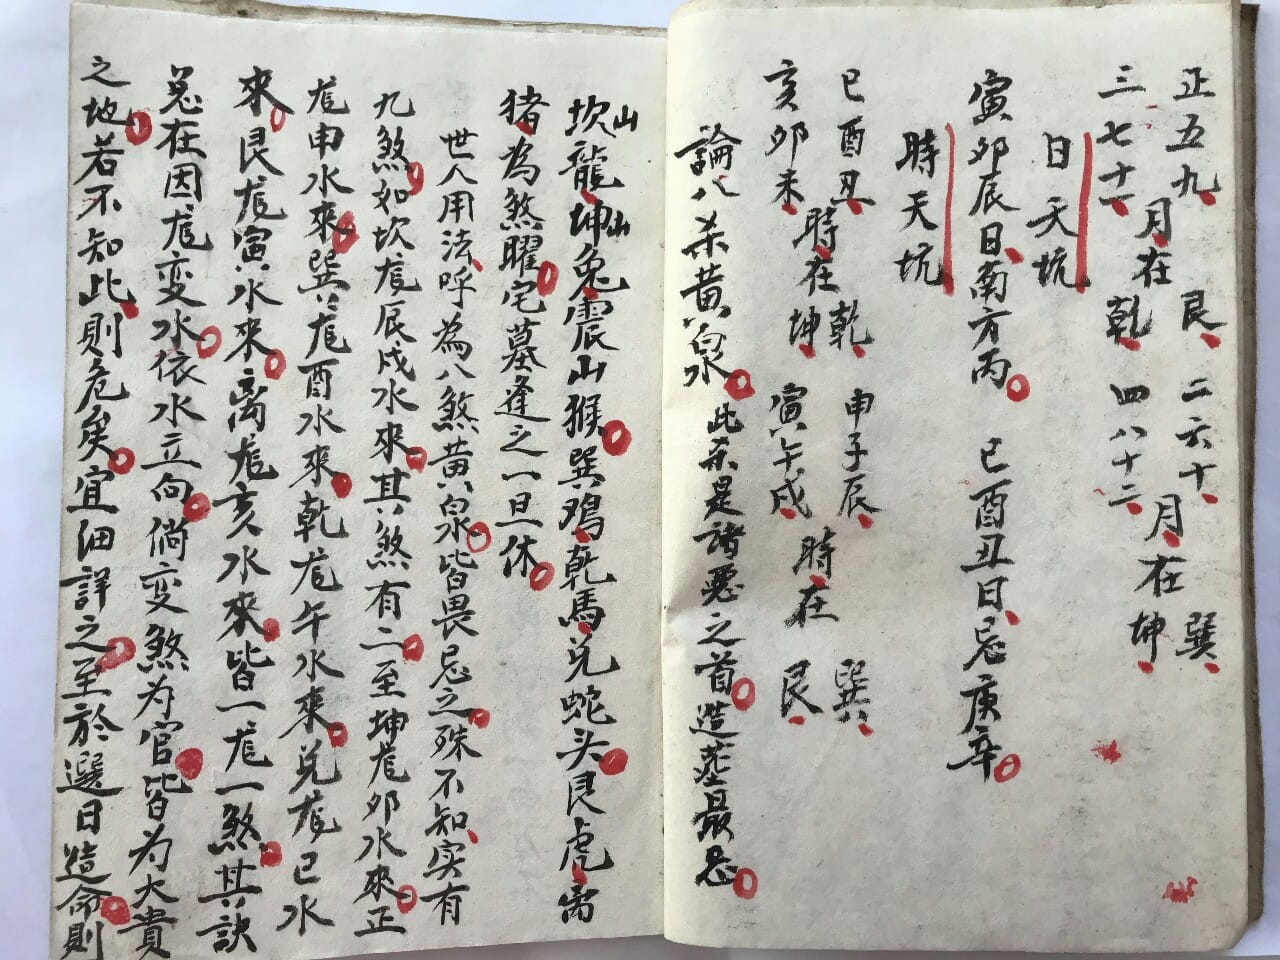 正五九
三七十一
月在
艮
乾
二六十
四八十二
月在
巽
坤
日天坑
寅卯辰日南方丙 巳酉丑日忌庚辛
時天坑
巳酉丑
亥卯未
時在
乾
坤
申子辰
寅午戌
時在
巽
艮
論八杀黄泉 此杀是諸惡之首造塟最忌
坎山龍坤山兔震山猴巽鸡乾馬兑蛇头艮虎离
猪為煞曜宅墓逢之一旦休
世人用法呼為八煞黄泉皆畏忌之殊不知实有
九煞如坎尨辰戌水來其煞有二至坤尨卯水來正
尨申水來巽尨酉水來乾尨午水來兑尨巳水
來艮尨寅水來离尨亥水來皆一尨一煞其訣
总在因尨变水依水立向倘变煞为官皆为大貴
之地若不知此則危矣宜细詳之至於選日造命則